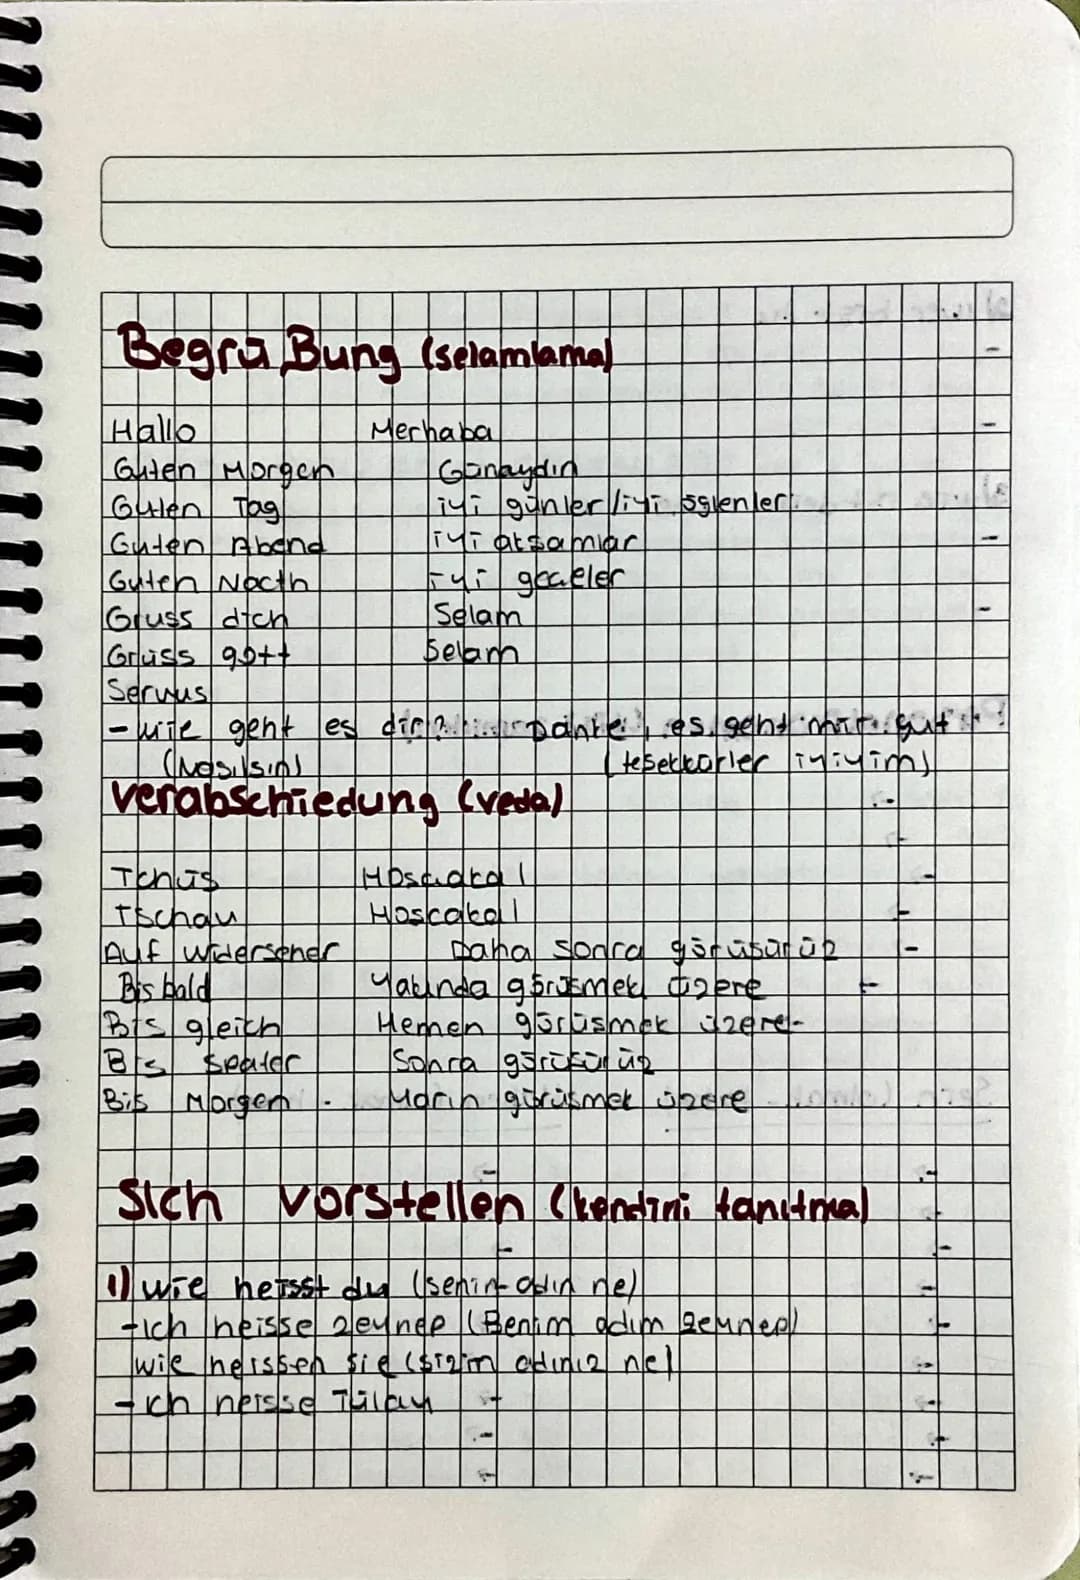 Begrüßung (selamlama)
Hallo Merhaba
Guten Morgen Günaydın
Guten Tag iyi günler/iyi öğlenler
Guten Abend iyi akşamlar
Guten Nacth iyi geceler
Gruss dich Selam
Grüss gott Selam
Servus
- wie geht es dir? Danke, es geht mir gut
(Nasılsın) (teşekkürler iyiyim)
Verabschiedung (veda)
Tchüs Hoscakal
Tschau Hoscakal
Auf Widerseher Daha sonra görüsürüz
Bis bald Yakında görüsmek üzere
Bis gleich Hemen görüsmek üzere
Bis Speater Sonra görüsürüz
Bis Morgen Yarın görüsmek üzere
Sich vorstellen (kendini tanıtma)
1) wie heisst du (senin adın ne)
- Ich heisse Zeynep (Benim adım Zeynep)
wie heissen sie (sizin adınız ne)
- ich heisse Tülay